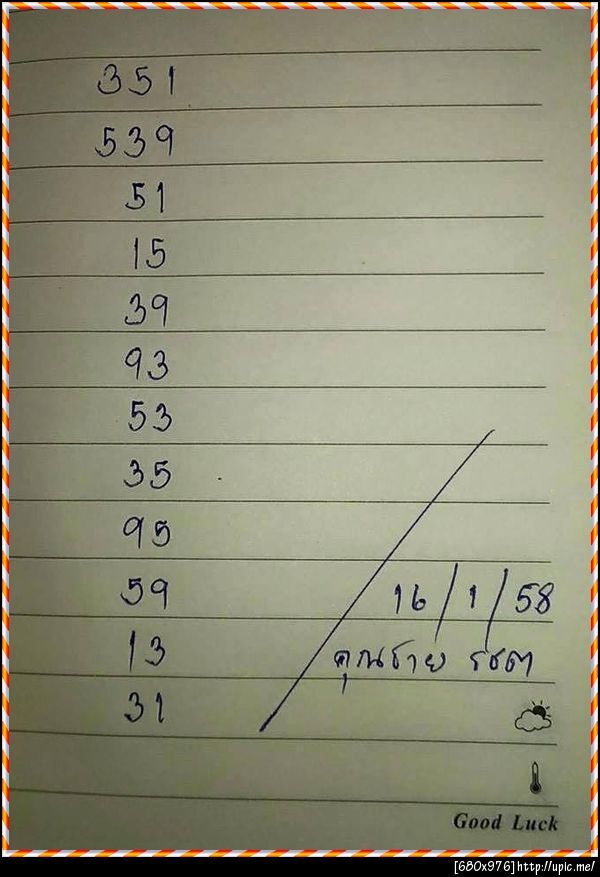 351
539
51
15
39
93
53
35
95
59
13
31
16/1/58
คุณชาย รชต
Good Luck
[680x976]http://upic.me/